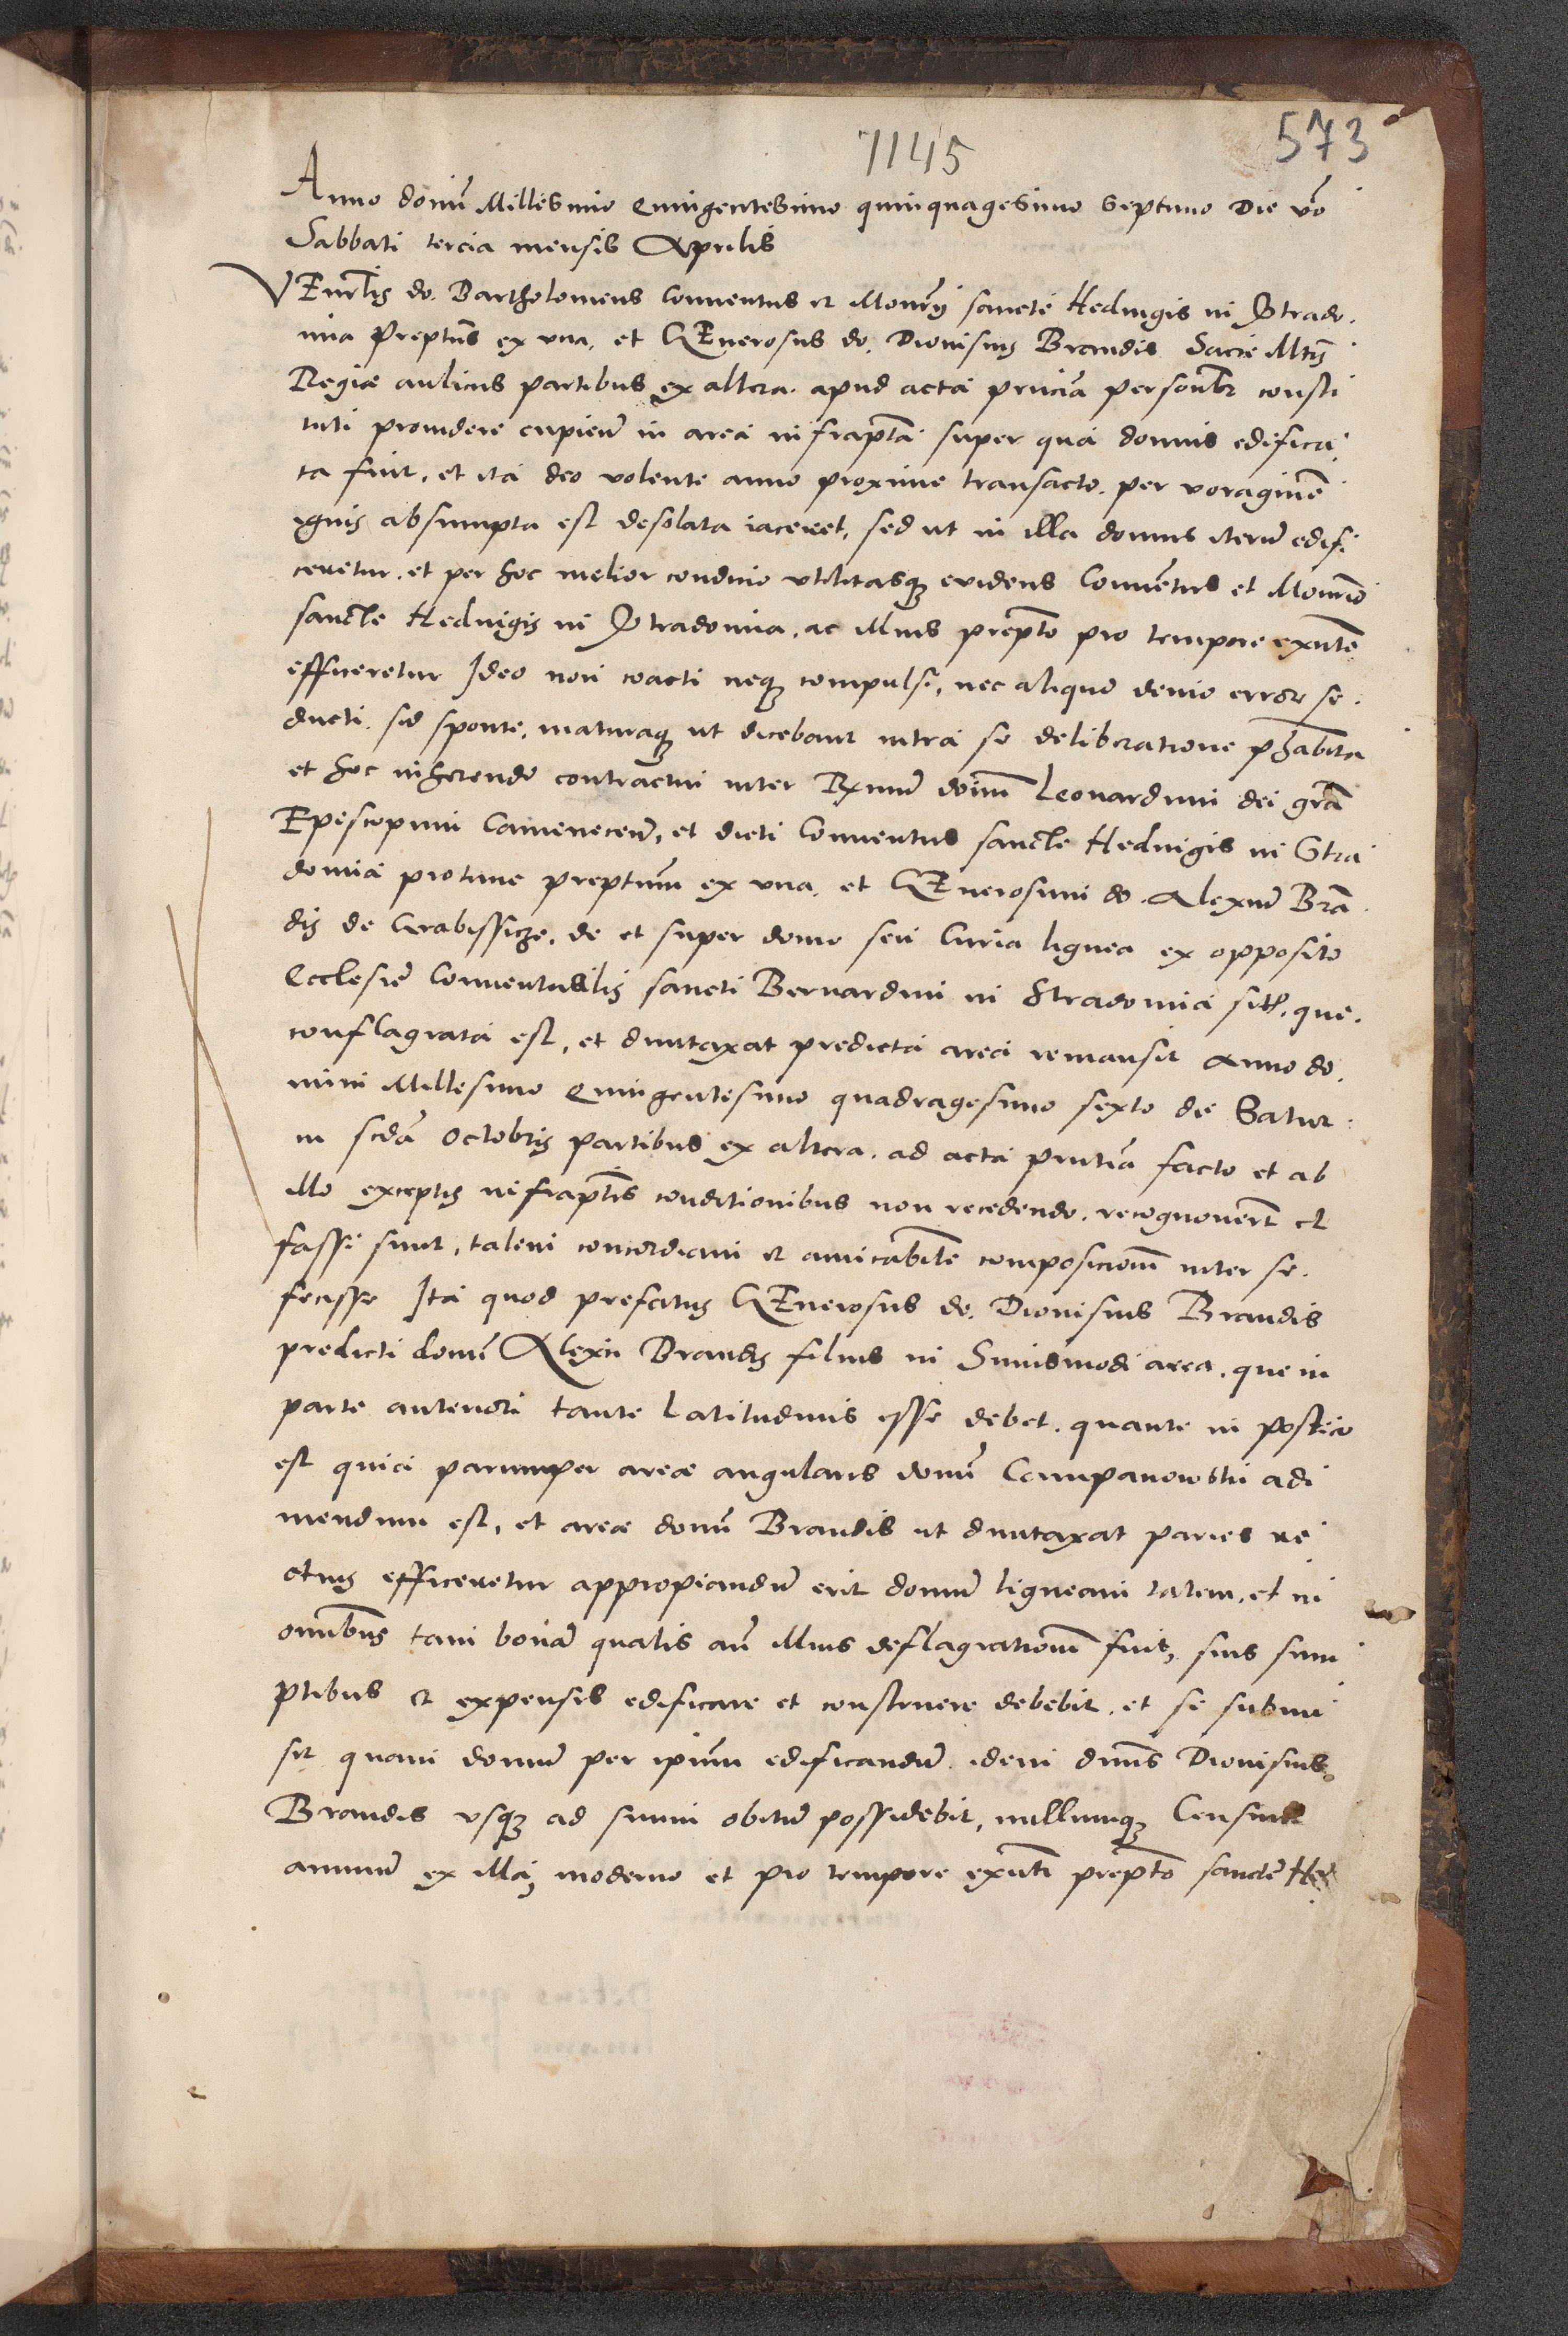 1145
573
Anno domi͂ Millesimo Quingentesimo quinquagesimo septimo Die vo͂
Sabbati tercia mensis Aprilis
VEnrlis do. Bartholomeus Conuentus et Monrÿ sancte Heduigis in Strado.
mia Preptus ex vna, et GEnerosus do. Dionisius Brandis Sacre Mtis
Regiæ aulicus partibus ex altera. apud acta pncia͂ personlr consti
tuti prouidere cupien͂ in area infrapta͂ super qua domus edifica
ta fuit, et ita deo volente anno proxime transacto. per voragine͂
ignis absumpta est desolata iaceret, sed ut in illa domus iteru͂ edifi
ceretur. et per hoc melior condicio vtilitasq; euidens Conuentus et Monrio
sancte Heduigis in Stradomia. ac illius prepto pro tempore exnte͂
efficeretur Ideo non coacti neq; compulsi, nec aliquo deuio errore se.
ducti. sed sponte, maturaq; ut dicebant intra se deliberatione phabita
et hoc inherendo contractui inter Rx͂mu͂ doim͂ Leonardum dei gra͂
Episcopum Camenecen͂, et dicti Conuentus sancte Heduigis in Stra
domia protunc preptum ex vna. et GEnerosum do. Alexiu͂ Bra͂
dis de Grabissicze, de et super domo seu Curia lignea ex opposito
Ecclesie͂ Conuentualis sancti Bernardini in Stradomia sit. que.
conflagrata est, et duntaxat predicta area remansit Anno do.
mini Millesimo Quingentesimo quadragesimo sexto die Satur
ni scda͂ Octobris partibus ex altera. ad acta pntia͂ facto et ab
illo exceptis infraptis conditionibus non recedendo. recognouert͂ et
fassi sunt, talem concordiam et amicabile͂ composicionem inter se.
fecisse Ita quod prefatus GEnerosus do. Dionisius Brandis
predicti domi͂ Alexii Brandis filius in huiusmodi area. que in
parte anteriori tante latitudinis esse debet. quante in postico
est quia parumper areæ angularis domi͂ Companowskii adi
mendum est, et areæ domi͂ Brandis ut duntaxat paries re
ctus efficeretur appropiandu͂ erit domu͂ ligneam talem, et in
omnibus tam bona͂ qualis an͂ illius deflagrationem fuit, suis sum
ptibus et expensis edificare et construere debebit. et se submi
sit quam domu͂ per ipsum edificandu͂ idem dnus Dionisius
Brandis vsq; ad suum obitu͂ possidebit, nullumq; Censum
annuu͂ ex illa, moderno et pro tempore exnti prepto sancte He